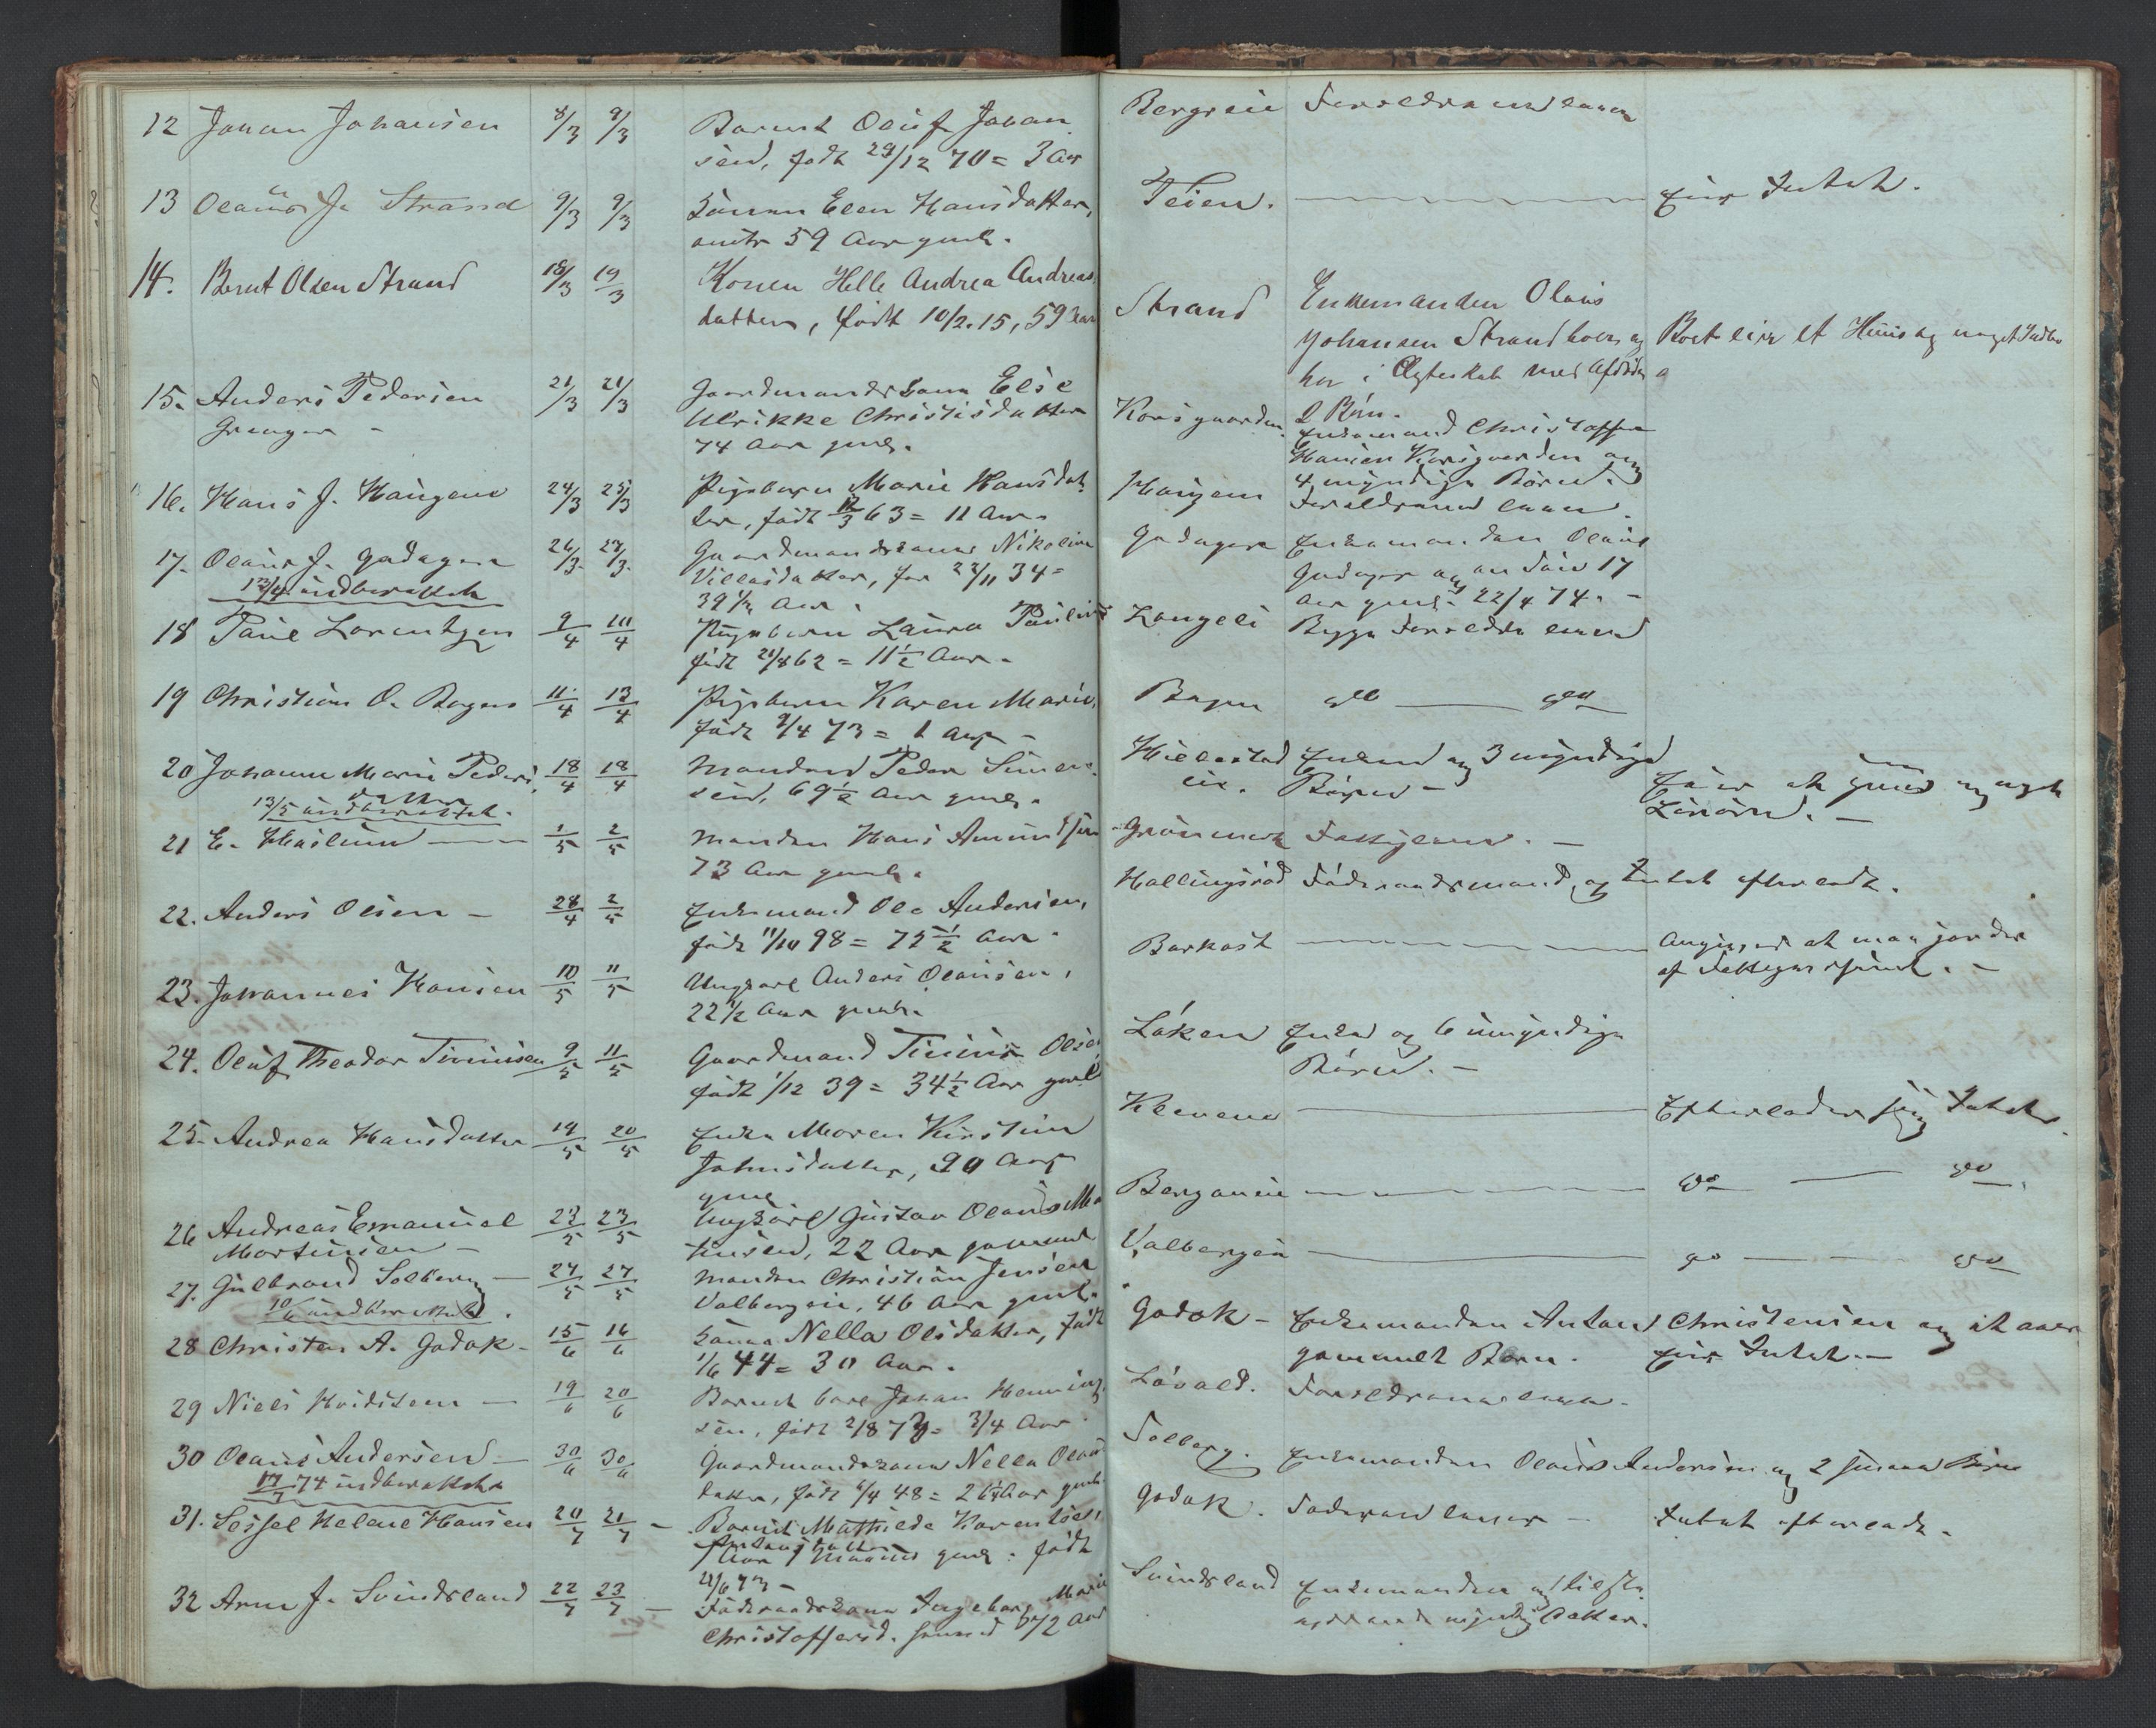 12 Johan Johansen 8/3 9/3 Barnet Oluf Johan
sen, født 29/12 70 = 3 Aar
Bergseie Forældrene lever
13 Olaus J. Strand 9/3 9/3 Konen Elen Hansdatter,
59 Aar gml.
Teien. eier Intet.
14. Bernt Olsen Strand 18/3 19/3 Konen Helle Andrea Andreas
datter, født 10/2.15, 59 Aar
Strand Enkemanden Olaus
Johansen Strand lever og
har i Ægteskab med Afdøde
2 Børn.
Boet eier et Huus og noget Indbo
15. Anders Pedersen 21/3 21/3 Gaardmandskone Else
Grenager - Ulrikke Christisdatter
74 Aar gml.
Korsgaarden. Enkemand Christoffer
Hansen Korsgaarden og
4 myndige Børn.
16. Hans J. Haugen 24/3 25/3 Pigebarn Marie Hansdat
ter, født 12/3 63 = 11 Aar.
Haugen Forældrene lever.
17. Olaus J. Gadager 26/3. 27/3. Gaardmandskone Nikoline
13/4 indberettet Villasdatter, før 22/11 34 =
39 1/2 Aar.
Gadager Enkemanden Olaus
Gadager og en Søn 17
Aar gml. 22/4 74. -
18 Paul Lorentzen 9/4 10/4 Pigebarn Laura Pauline
født 21/8 62 = 11 1/2 Aar.
Langeli Begge Forældre lever
19 Christian O. Bagen 11/4 13/4 Pigebarn Karen Marie,
født 9/4 73 = 1 Aar -
Bagen do do
20 Johanne Marie Peders 18/4 18/4 Manden Peder Simen
datter sen, 69 1/2 Aar gml.
13/5 indberettet.
Hillestad Enken og 3 myndige
eie. Børn -
Eier et Huus og noget
Løsøre. -
21 E. Haslum 1/5 2/5 Manden Hans Amundsen
73 Aar gml.
Grønmerk Fattiglem. -
22. Anders Olsen - 28/4 2/5 Enkemand Ole Andersen,
født 11/10 98 = 75 1/2 Aar.
Hallingsrød Føderaadsmand, og Intet efterladt.
23. Johannes Hansen 10/5 11/5 Ungkarl Anders Olausen,
22 1/2 Aar gml.
Barkost Angives at være jordet
af Fattigvæsenet. -
24. Oluf Theodor Tinius­sen 9/5 11/5 Gaardmand Tinius Olsen
født 1/12 39 = 34 1/2 Aar gml
Løken Enke og 6 umyndige
Børn. -
25. Andrea Hansdatter 19/5 20/5 Enke Maren Kirstine
Johnsdatter, 90 Aar
gml.
Klevene Efterlader sig Intet.
26 Andreas Emanuel 23/5 23/5 Ungkarl Gustav Olaus Mar
Martinsen - tinsen, 22 Aar gammel
Berganeie do do.
27. Gulbrand Solberg - 27/5 27/5 Manden Christian Jensen
10/6 indberettet. Valbergeie, 46 Aar gml.
Valbergeie do do
28 Christen A. Gadok - 15/6 16/6 Kone Nella Olsdatter, født
1/6 44 = 30 Aar.
Gadok - Enkemanden Anton Christensen og it aar
gammelt Barn. eier Intet. -
29 Niels Hvidsteen - 19/6 20/6 Barnet Carl Johan Henning
sen, født 2/8 73 = 3/4 Aar
Løvald. Forældrene lever.
30 Olaus Andersen - 30/6 30/6 Gaardmandskone Nella Olaus
17/7 74 indberettet datter, født 6/4 48 = 26 1/4 Aar gml
Solberg. Enkemanden Olaus Andersen og 2 smaa Børn
31. Sessel Helene Hansen 20/7 21/7 - Barnet Mathilde Karentse,
Antonsdatter
1 Aar 1 Maaned gml. født
21/6 73 -
Gadok. Faderen lever - Intet efterladt.
32 Arne J. Svindsland 22/7 23/7 - Føderaadskone Ingeborg Marie
Christoffersd. 72 Aar
Svindsland Enkemanden og tilsted
myndig Datter.